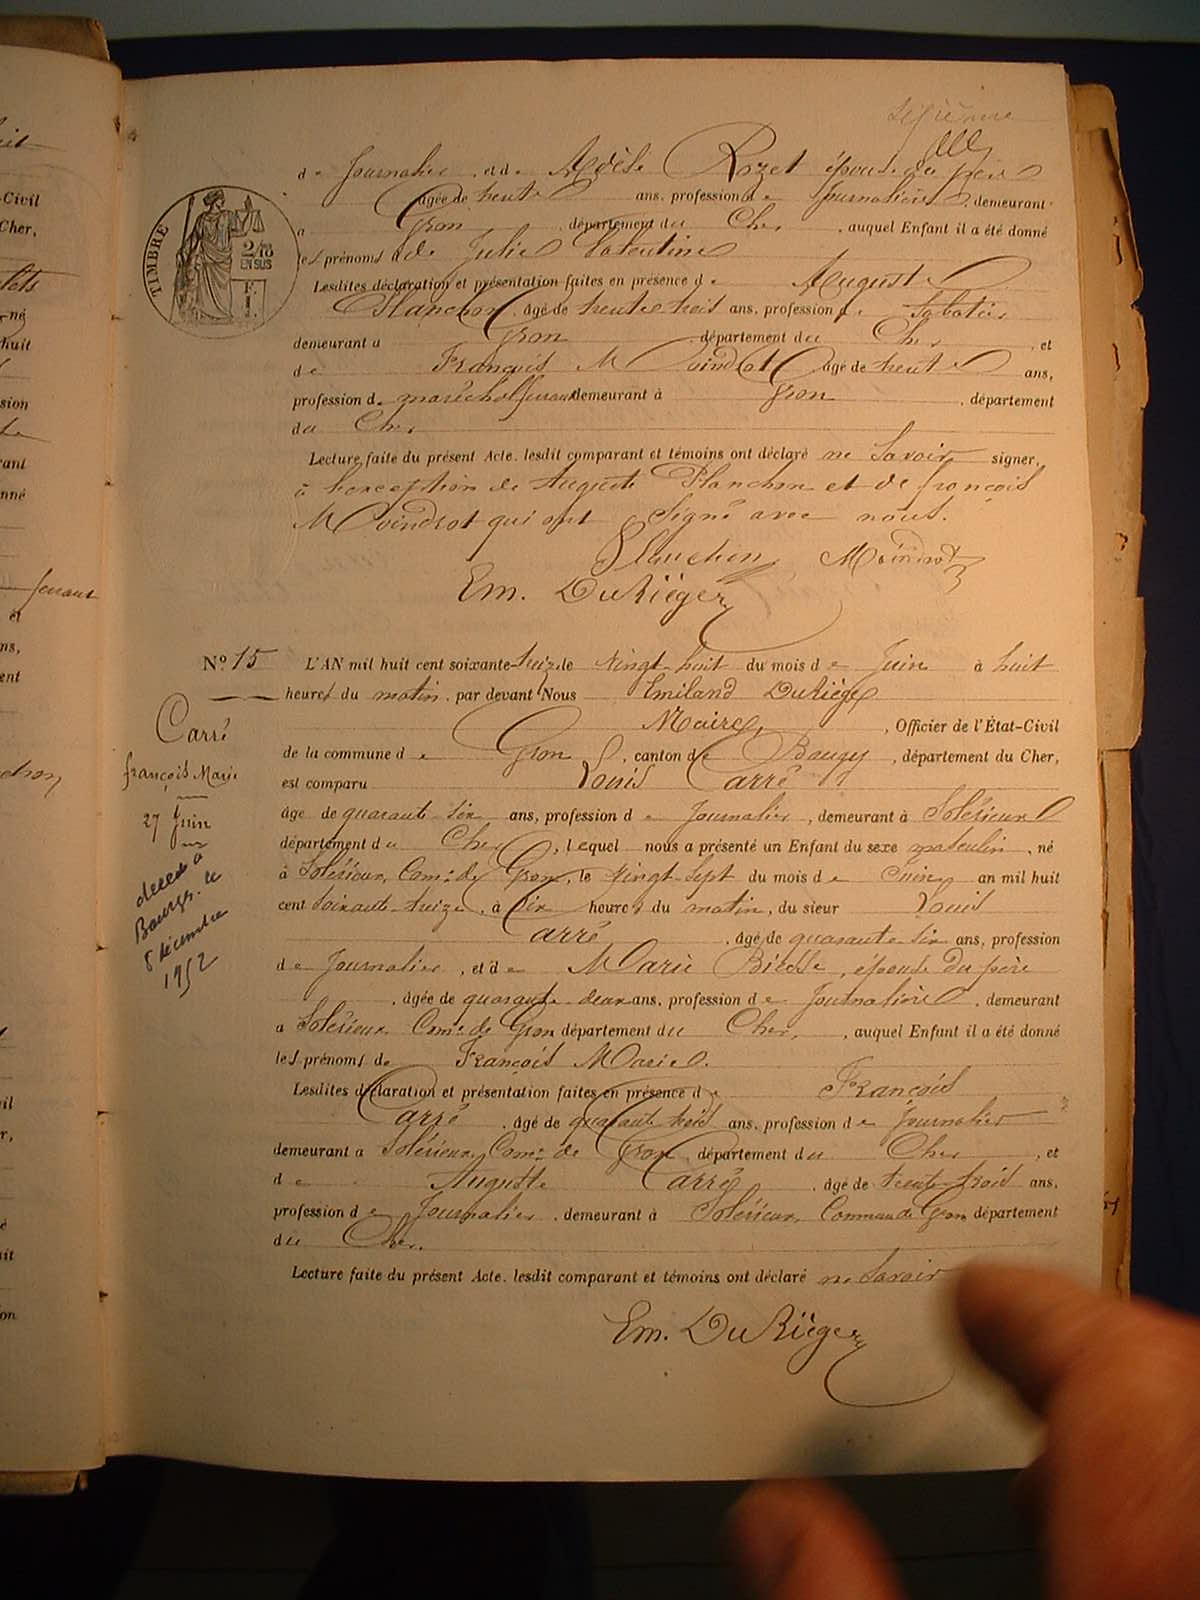 sixième
de Journalier, et de Adèle Rozet épouse du père
agée de trente ans, profession de Journalière, demeurant
a Gron département du Cher, auquel Enfant il a été donné
les prénoms de Julie Valentine
Lesdites déclaration et présentation faites en présence de Auguste
Planchon, âgé de trente trois ans, profession de Sabotier
demeurant a Gron département du Cher, et
de François Moindrot âgé de trente ans,
profession de maréchal ferrant demeurant à Gron, département
du Cher
Lecture faite du présent Acte, lesdit comparant et témoins ont déclaré ne Savoir signer,
à l'exception de Auguste Planchon et de françois
Moindrot qui ont Signé avec nous.
Planchon Moindrot
Em. DuRiéger
TIMBRE
2/10
EN SUS
No 15 L'AN mil huit cent soixante-treize le vingt-huit du mois de Juin à huit
heures du matin, par devant Nous Emiland DuRiéger
Maire, Officier de l'État-Civil
de la commune de Gron, canton de Baugy, département du Cher,
est comparu Louis Carré
âgé de quarante six ans, profession de Journalier, demeurant à Solérieux
département du Cher, lequel nous a présenté un Enfant du sexe masculin, né
à Solérieux, Com.e de Gron, le vingt-sept du mois de Juin an mil huit
cent soixante-treize, à six heures du matin, du sieur Louis
Carré, âgé de quarante six ans, profession
de Journalier, et de Marie Bicosse, épouse du père
, agée de quarante-deux ans, profession de Journalière, demeurant
a Solérieux Com.e de Gron département du Cher, auquel Enfant il a été donné
les prénoms de François Marie.
Lesdites déclaration et présentation faites en présence de François
Carré, âgé de quarante trois ans, profession de Journalier
demeurant a Solérieux, Com.e de Gron, département du Cher, et
de Auguste Carré, âgé de trente-trois ans,
profession de Journalier, demeurant à Solérieux, Commune de Gron département
du Cher.
Lecture faite du présent Acte, lesdit comparant et témoins ont déclaré ne Savoir
Em. DuRiéger
Carré
françois Marie
27 Juin
décédé à
Bourges le
8 décembre
1952